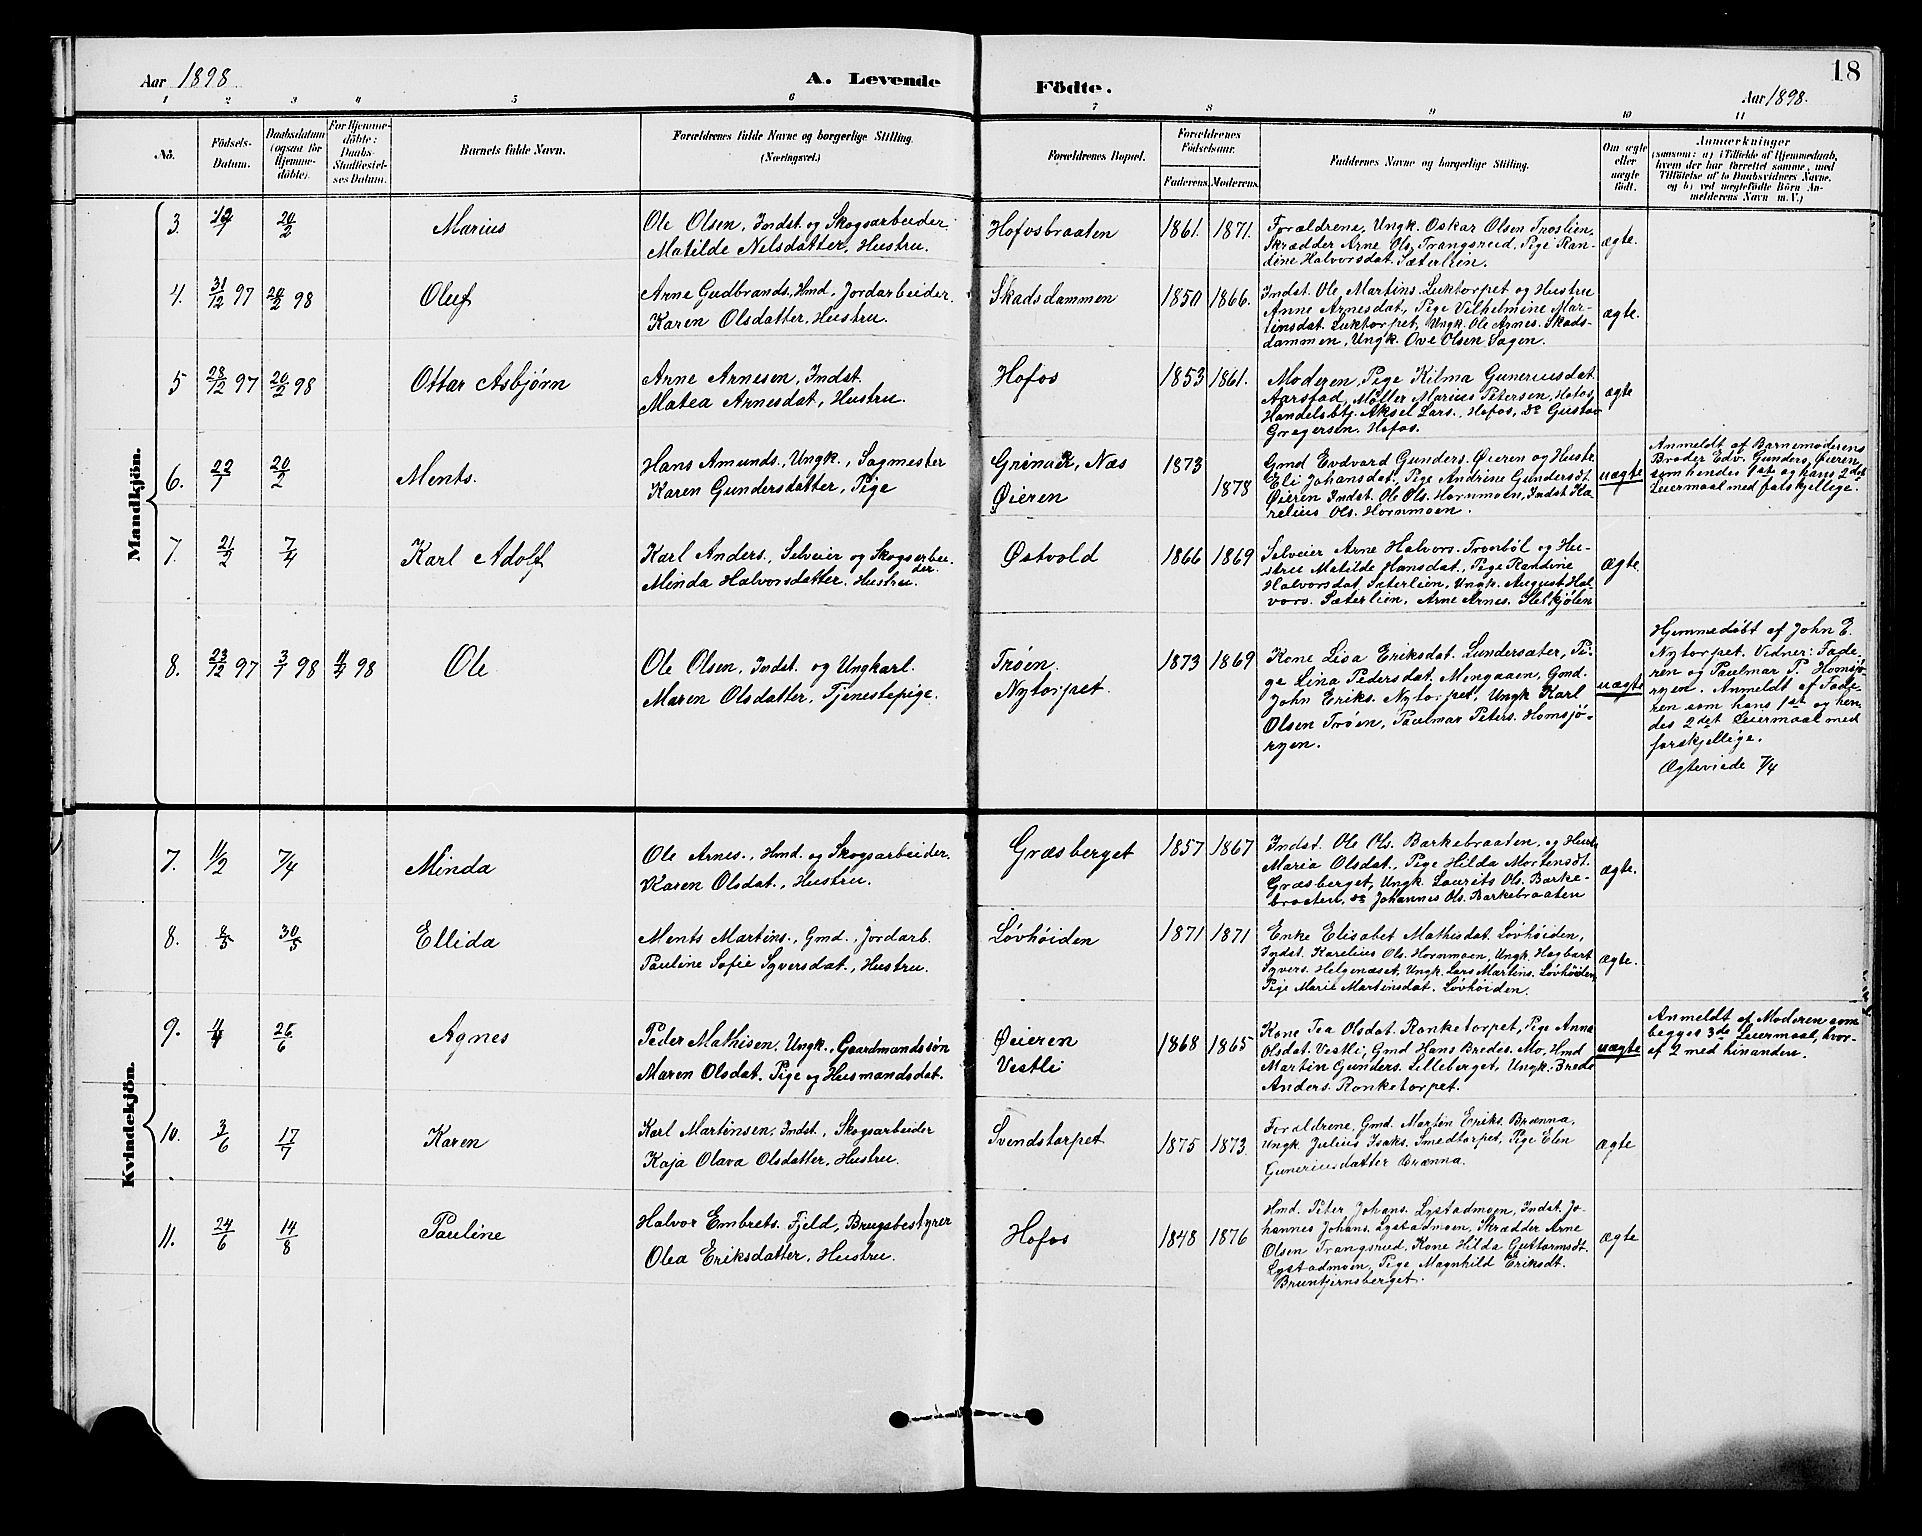 Aar 1898
A. Levende Födte.
Aar 1898.
18
1 2 3 4 5 6 7 8 9 10 11
No.
Födsels-Datum.
Daabsdatum (ogsaa for Hjemmedöbte).
For Hjemmedöbte: Daabs-Stadfæstelses Datum.
Barnets fulde Navn.
Forældrenes fulde Navne og borgerlige Stilling. (Næringsvei.)
Forældrenes Bopæl.
Forældrenes Födselsaar.
Faderens. Moderens.
Faddernes Navne og borgerlige Stilling.
Om ægte eller uægte födt.
Anmærkninger
(saasom: a) i Tilfælde af Hjemmedaab,
hvem der har forrettet samme, med
Tilföielse af to Daabsvidners Navne,
og b) ved uægtefödte Börn An-
melderens Navn m. V.)
Mandkjön.
3. 20/2 Marius
Ole Olsen, Indst. og Skogsarbeider.
Matilde Nilsdatter, Hustru.
Hofosbraaten 1861. 1871.
Forældrene, Ungk. Oskar Olsen Troslien,
Skrædder Arne Ols. Trangsrud, Pige Ran-
dine Halvorsdat. Sæterlien.
ægte.
4. 31/12 97 20/2 98 Oluf
Arne Gudbrands., Hmd., Jordarbeider.
Karen Olsdatter, Hustru.
Skadsdammen 1850 1866.
Indst. Ole Martins. Luktorpet og Hustru
Anne Arnesdat, Pige Vilhelmine Mar-
tinsdat. Luktorpet, Ungk. Ole Arnes. Skads-
dammen, Ungk. Ove Olsen Sagen.
ægte.
5 28/12 97 20/2 98 Ottar Asbjørn
Arne Arnesen, Indst.
Matea Arnesdat, Hustru.
Hofos 1853 1861.
Moderen, Pige Kilma Guneriusdat.
Aarstad, Møller Marius Petersen, Hofos,
Handelsbtj. Aksel Lars., Hofos, do Gustav
Gregersen. Hofos.
ægte
6. 22/1 20/2 Ments.
Hans Amunds., Ungk., Sagmester
Karen Gundersdatter, Pige
Grinaker, Næs 1873
Øieren 1878
Gmd Evdvard Gunders. Øieren og Hustr.
Eli Johansdat., Pige Andrine Gundersdt.
Øieren Indst. Ole Ols. Hornmoen, Indst Ka-
relius Ols. Hornmoen.
uægte
Anmeldt af Barnemoderens
Broder Edv. Gunders. Øieren,
som hendes 1st og hans 2det
Leiermaal med forskjellige.
7. 21/2 7/4 Karl Adolf
Karl Anders., Selveier og Skogsarbei-
der.
Minda Halvorsdatter. Hustru
Østvold 1866 1869
Selveier Arne Halvors. Tronbøl og Hu-
stru Matilde Hansdat., Pige Randine
Halvorsdat Sæterlien, Ungk. August Hal-
vors. Sæterlien, Arne Arnes. Sletkjølen
ægte.
8. 23/12 97 3/1 98 98 Ole
Ole Olsen, Indst. og Ungkarl.
Maren Olsdatter, Tjenestepige.
Trøen. 1873 1869
Nytorpet.
Kone Lisa Eriksdat. Lundersæter, Pi-
ge Lina Pedersdat. Mengaaen, Gmd.
John Eriks. Nytorpet, Ungk Karl
Olsen Trøen, Paulmar Peters. Homsjø-
ryen.
uægte
Hjemmedøbt af John E.
Nytorpet. Vidner: Fade-
ren og Paulmar P. Homsjø-
ryen. Anmeldt af Fade-
ren som hans 1st og hen-
des 2det Leiermaal med
forskjellige.
Ægteviede 7/4
Kvindekjön.
7. 11/2 7/4 Minda
Ole Arnes., Hmd. og Skogsarbeider.
Karen Olsdat., Hustru.
Græsberget 1857 1867
Indst. Ole Ols. Barkebraaten, og Hust.
Maria Olsdat., Pige Hilda Mortensdt.
Græsberget, Ungk. Laurits Ols. Barke-
braaten, do Johannes Ols. Barkebraaten
ægte.
8. 8/3 30/5 Ellida
Ments Martins., Gmd., Jordarb.
Pauline Sofie Syversdat., Hustru.
Løvhøiden 1871 1871
Enke Elisabet Mathisdat. Løvhøiden,
Indst. Karelius Ols. Hornmoen, Ungk. Hagbart
Syvers. Helgenæset, Ungk. Lars Martins. Løvhøiden,
Pige Marie Martinsdat. Løvhøiden.
ægte.
9. 11/4 26/6 Agnes
Peder Mathisen. Ungk., Gaardmandssøn
Maren Olsdat. Pige og Husmandsdat.
Øieren 1868 1865
Vestli
Kone Tea Olsdat. Ronketorpet, Pige Anna
Olsdat. Vestli, Gmd Hans Bredes. Mo, Hmd
Martin Gunders. Lilleberget, Ungk. Brede
Anders. Ronketorpet.
uægte
Anmeldt af Moderen som
begges 3de Leiermaal, hvor-
af 2 med hinanden.
10. 3/6 17/7 Karen
Karl Martinsen. Indst., Skogsarbeider
Kaja Olava Olsdatter, Hustru.
Svendstorpet 1875 1873.
Forældrene, Gmd. Morten Eriks. Brænna,
Ungk. Julius Isaks. Smedtorpet, Pige Elen
Guneriusdatter Brænna.
ægte
11. 24/6 14/8 Pauline
Halvor Embrets. Fjeld, Brugsbestyrer
Olea Eriksdatter, Hustru.
Hofos 1848 1876
Hmd. Peter Johans. Lystadmoen, Indst. Jo-
hannes Johans. Lystadmoen, Skrædder Arne
Olsen Trangsrud, Kone Hilda Guttormsdt.
Lystadmoen, Pige Magnhild Eriksdt.
Bruntjernsberget.
ægte